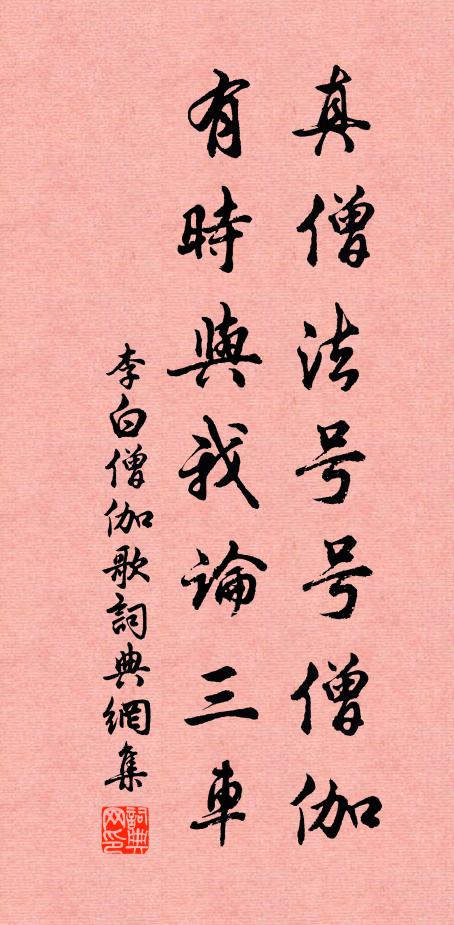 真僧法号号僧伽
有時與我論三車
李白僧伽歌詞典網集
詞典网印